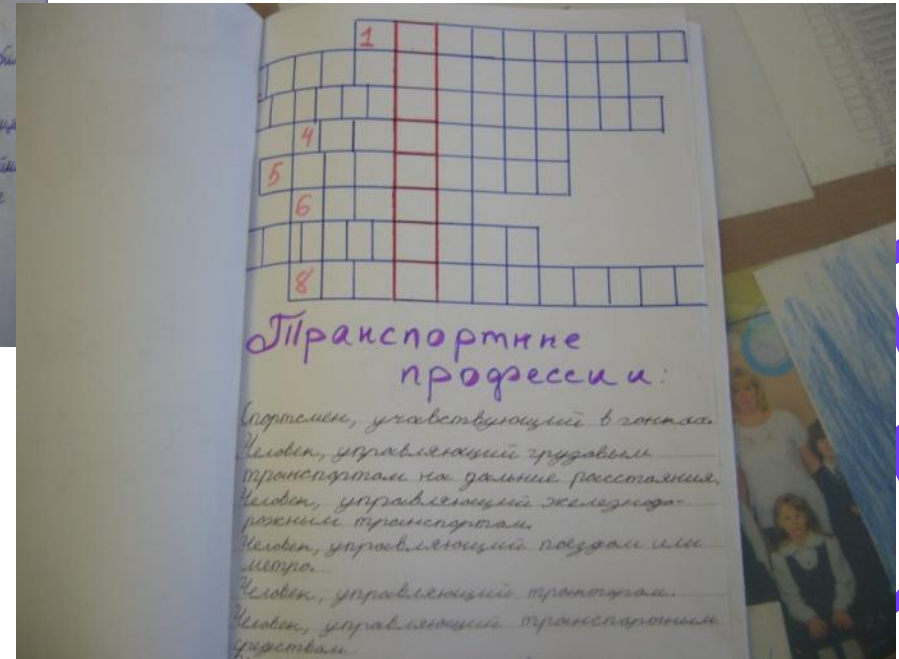 1
4
5
6
8
Транспортные
профессии:
Спортсмен, учавствующий в гонках.
Человек, управляющий грузовым
транспортом на дальние расстояния.
Человек, управляющий железнодо-
рожным транспортом.
Человек, управляющий поездом или
метро.
Человек, управляющий трактором.
Человек, управляющий транспортным
средством